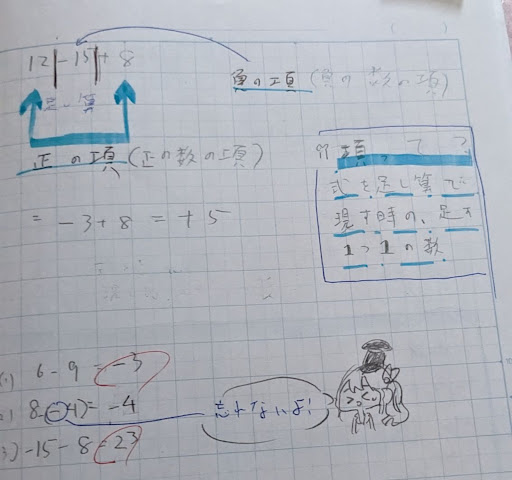 12|-15|+8
負の項(負の数の項)
足し算
正の項(正の数の項)
項って?
式を足し算で
現す時の、足す
1つ1の数
= -3+8 = +5
(1) 6-9 = -3
8-(-4)= -4
忘れないよ!
3) -15-8=-23